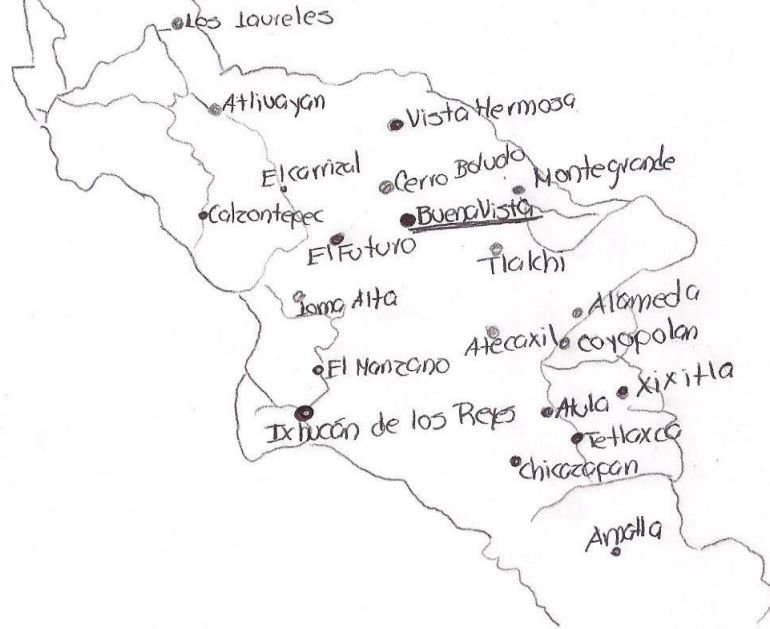 Los Laureles
Atlivayan
Vista Hermosa
El carrizal
Cerro Boludo
Montegrande
Calzontepec
BuenaVista
El Futuro
Tlalchi
Loma Alta
Alameda
Atecaxil
Coyopolan
El Manzano
Xixitla
Ixhucán de los Reyes
Atula
Tetlaxca
Chicazapan
Amalla